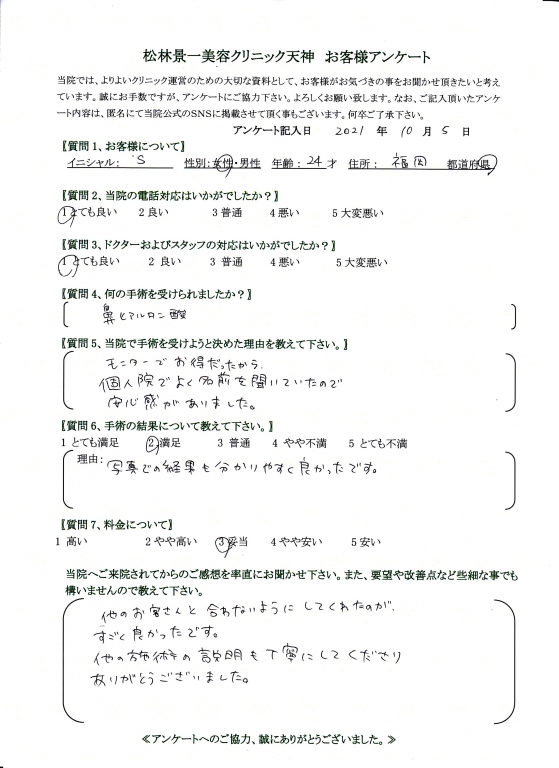 松林景一美容クリニック天神　お客様アンケート
当院では、よりよいクリニック運営のための大切な資料として、お客様がお気づきの事をお聞かせ頂きたいと考え
ています。誠にお手数ですが、アンケートにご協力下さい。よろしくお願い致します。なお、ご記入頂いたアンケ
ート内容は、匿名にて当院公式のSNSに掲載させて頂く事もございます。何卒ご了承下さい。
アンケート記入日　2021　年　10　月　5　日
〖質問1、お客様について〗
イニシャル：　S　性別:女性・男性　年齢：24才　住所：　福岡　都道府県
〖質問2、当院の電話対応はいかがでしたか？〗
1とても良い　2良い　3普通　4悪い　5大変悪い
〖質問3、ドクターおよびスタッフの対応はいかがでしたか？〗
1とても良い　2 良い　3 普通　4悪い　5大変悪い
〖質問4、何の手術を受けられましたか？〗
鼻ヒアルロン酸
〖質問5、当院で手術を受けようと決めた理由を教えて下さい。〗
モニターでお得だったから.
個人院でよく名前を聞いていたので
安心感がありました。
〖質問6、手術の結果について教えて下さい。〗
1 とても満足　2 満足　3 普通　4 やや不満　5 とても不満
理由：写真での経果も分かりやすく良かったです。
〖質問7、料金について〗
1 高い　2やや高い　3妥当　4やや安い　5安い
当院へご来院されてからのご感想を率直にお聞かせ下さい。また、要望や改善点など些細な事でも
構いませんので教えて下さい。
他のお客さんと合わないようにしてくれたのが.
すごく良かったです。
他の施術の説明も丁寧にしてくださり
ありがとうございました。
≪アンケートへのご協力、誠にありがとうございました。≫